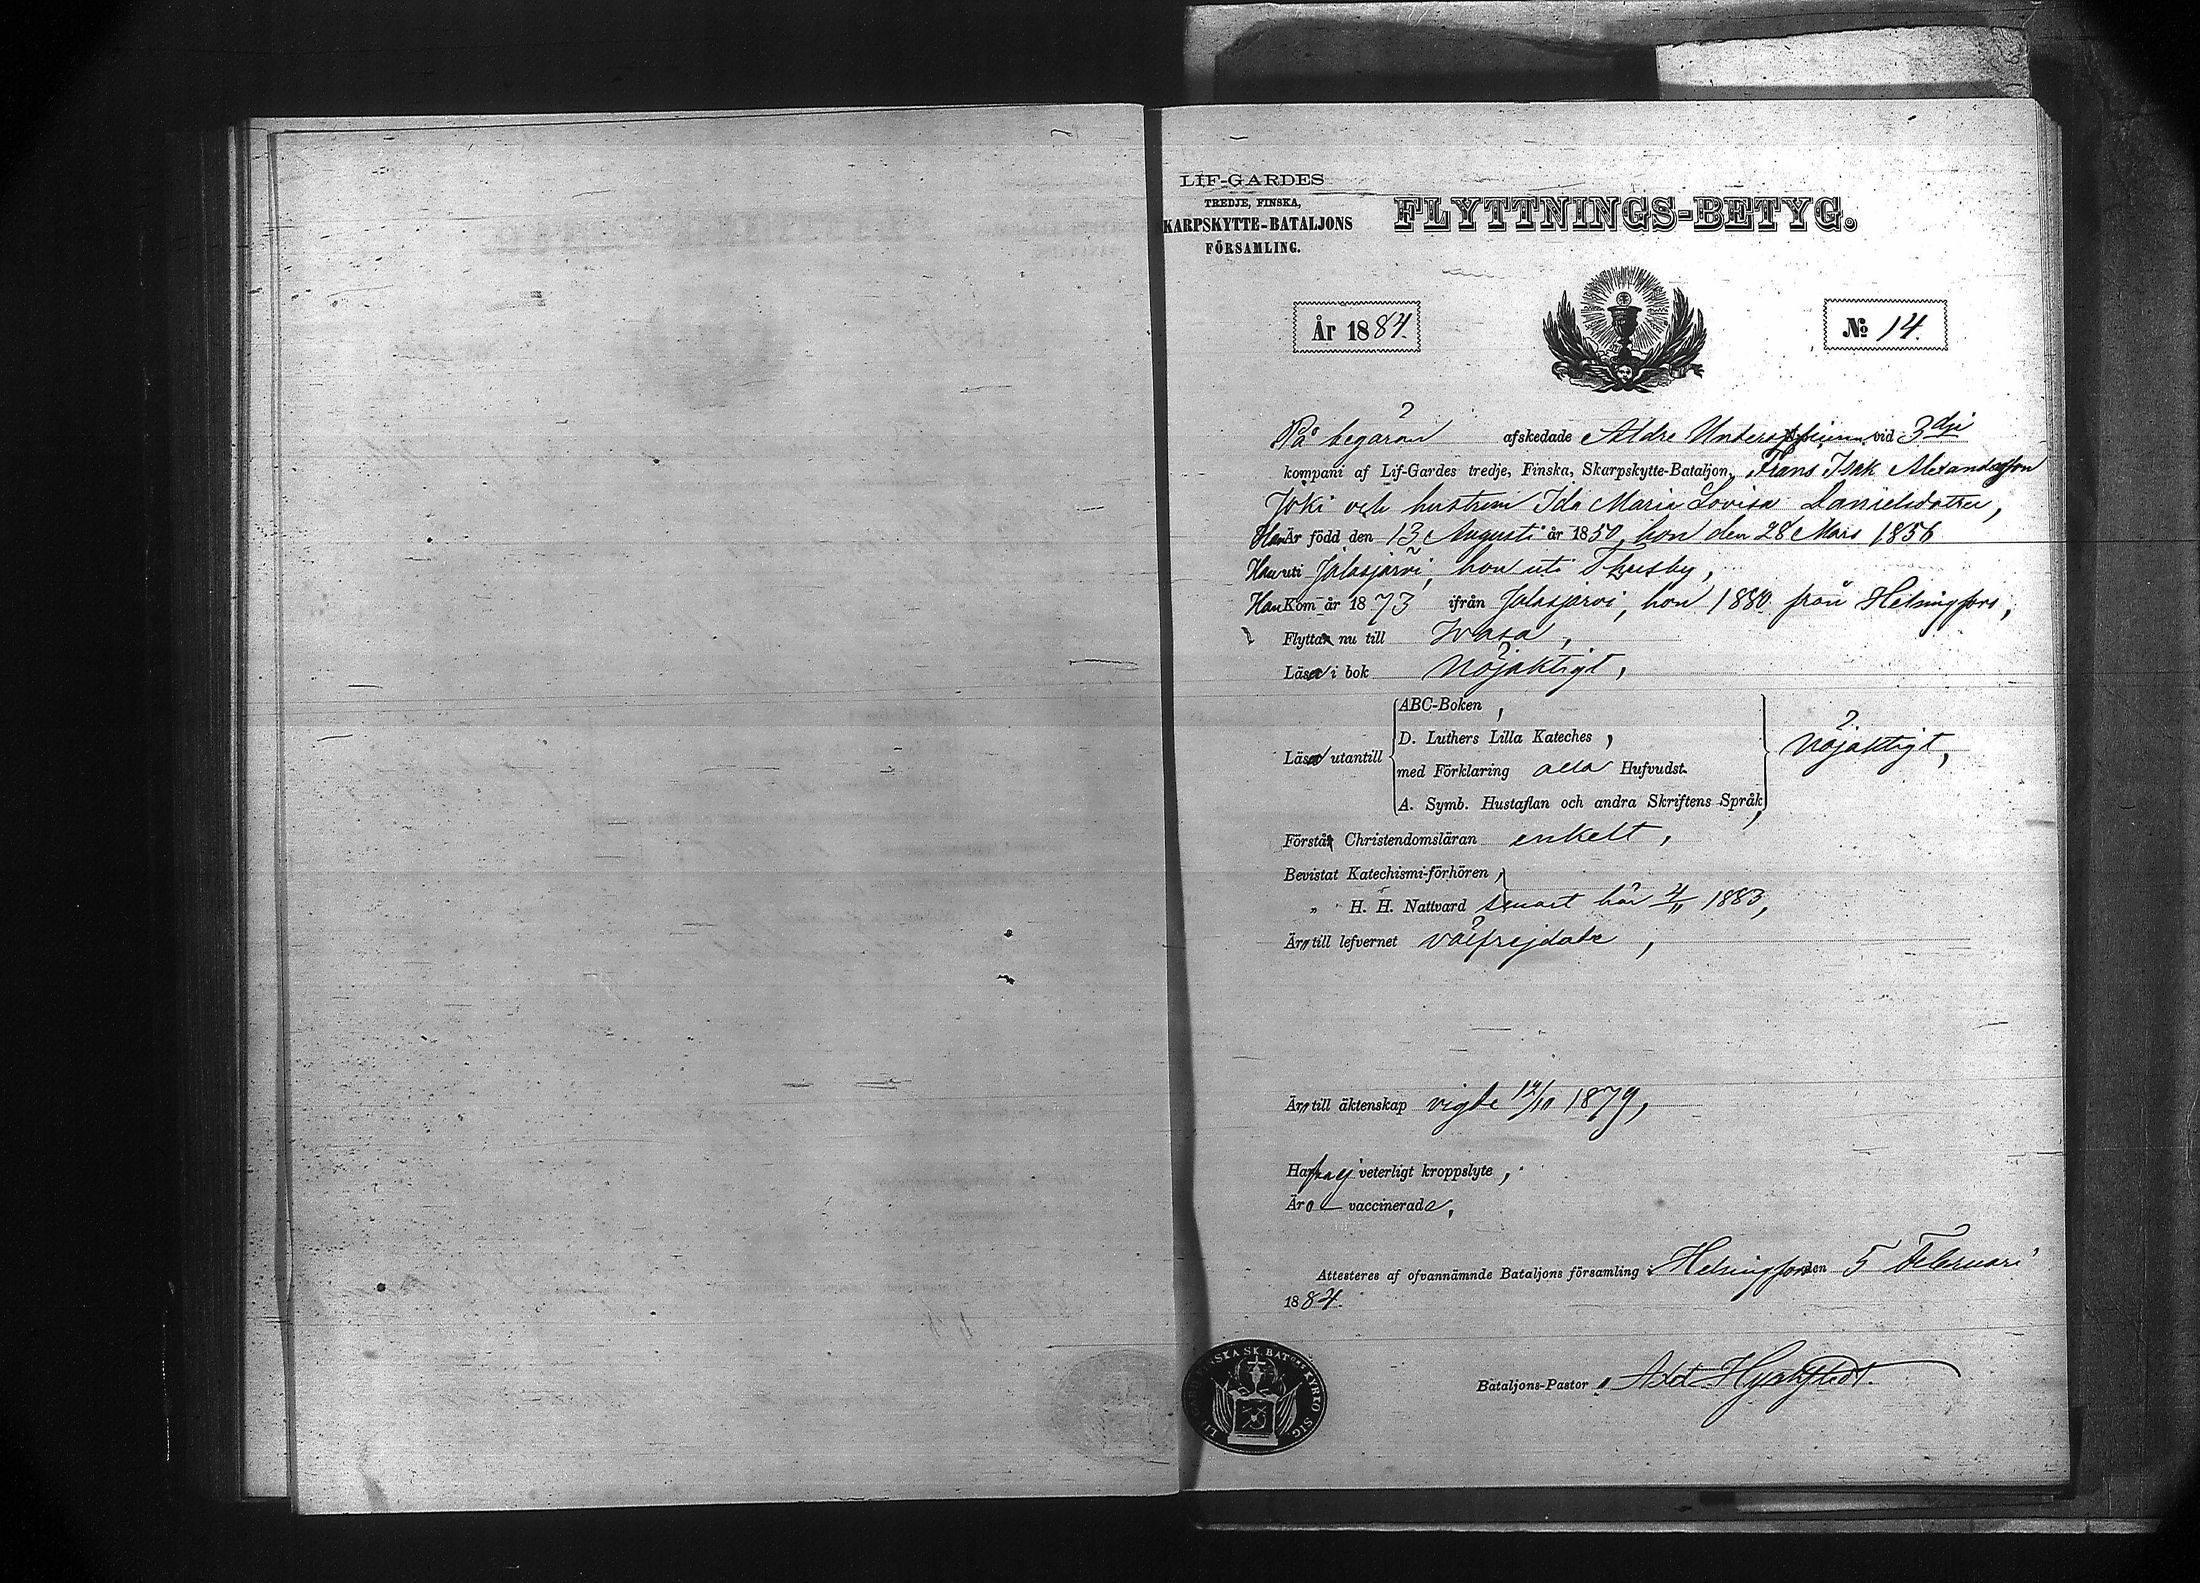 LIF-GARDES
TREDJE, FINSKA,
KARPSKYTTE-BATALJONS
FÖRSAMLING.
FLYTTNINGS-BETYG.
År 1884.
№ 14.
På begäran afskedade Äldre Underofficeren vid 3dje
kompani af Lif-Gardes tredje, Finska, Skarpskytte-Bataljon, Frans Isak Alexandersson
Joki och hustrun Ida Maria Lovisa Danielsdotter,
Han Är född den 13 Augusti år 1850, hon den 28 Mars 1856
Han uti Jalasjärvi, hon uti Thusby,
Han Kom år 1873 ifrån Jalasjärvi, hon 1880 från Helsingfors,
Flytta nu till Wasa,
Läsa i bok nöjaktigt,
Läsa utantill
ABC-Boken,
D. Luthers Lilla Kateches,
med Förklaring alla Hufvudst.
A. Symb. Hustaflan och andra Skriftens Språk,
nöjaktigt,
Förstå Christendomsläran enkelt,
Bevistat Katechismi-förhören,
„ H. H. Nattvard senast här 4/11 1883,
Äro till lefvernet välfrejdade,
Äro till äktenskap vigde 12/10 1879,
Hafva ej veterligt kroppslyte,
Äro vaccinerade,
Attesteras af ofvannämnde Bataljons församling i Helsingfors den 5 Februari
1884.
LIF GARD FINSKA SK. BATONS KYRKO SIG
Bataljons-Pastor